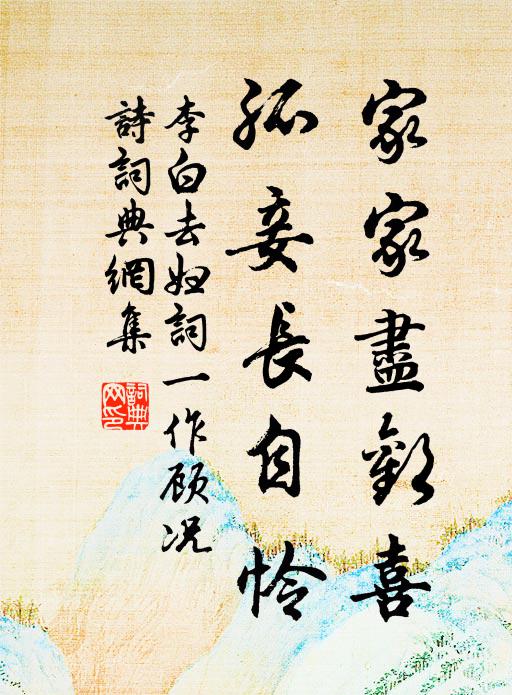 家家盡歡喜
孤妾長自怜
李白去妇詞一作顾况
詩詞典網集
詞典网印